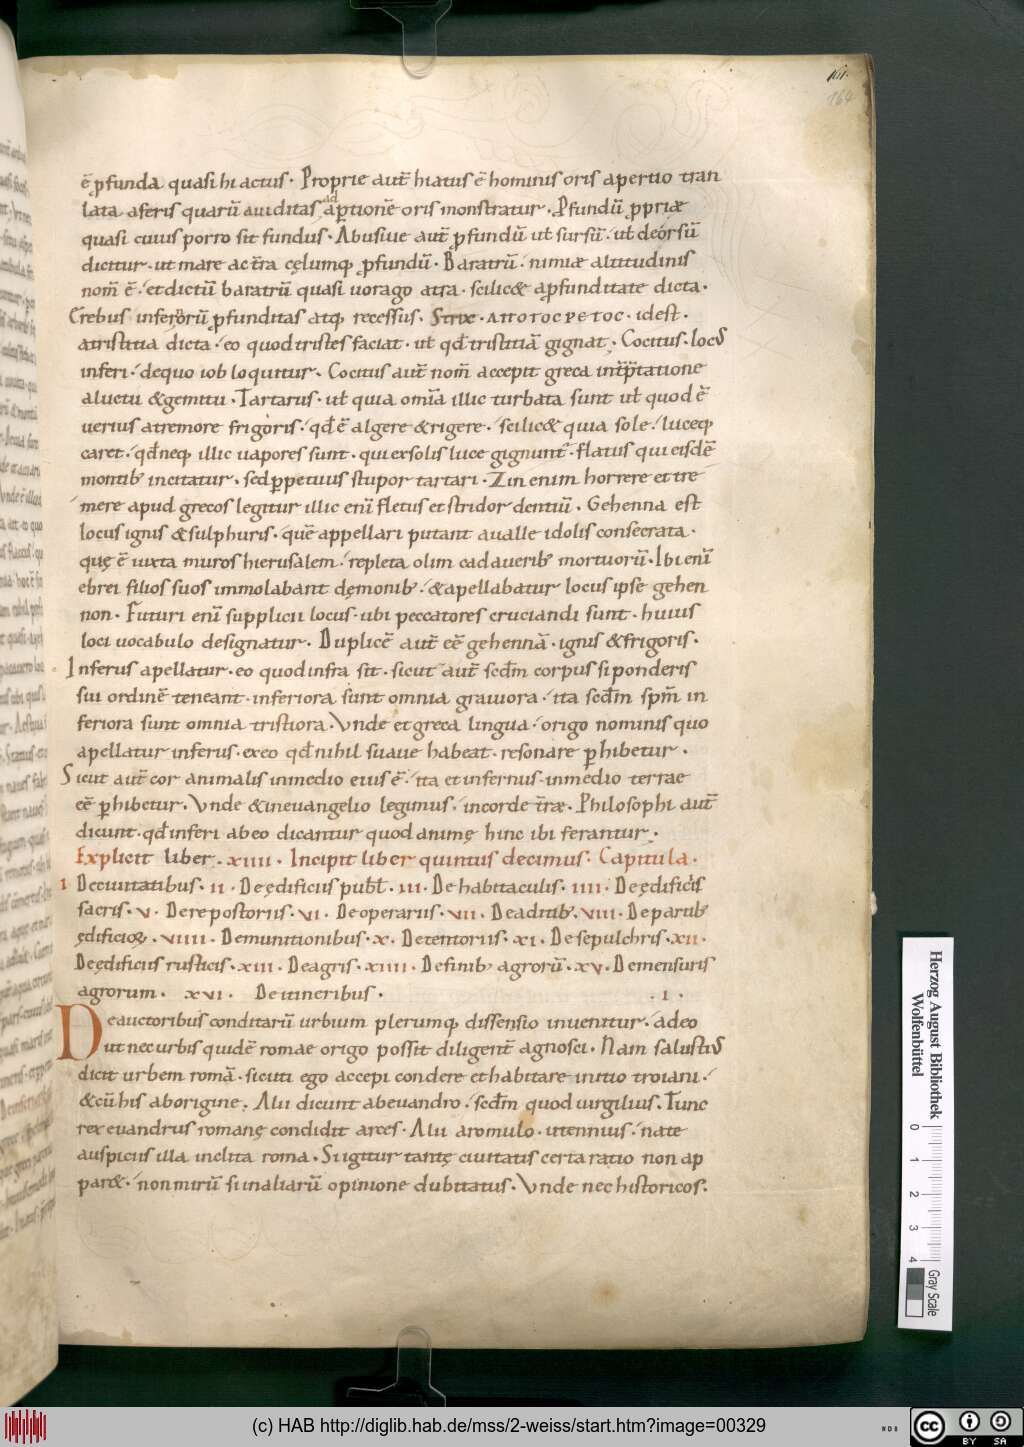 XII.
164
ē ꝓfunda quasi hi actus · Proprie aut̄ hiatus ē hominis oris apertio tran
lata aferis quarū auiditas ad aꝑtionē oris monstratur · Ꝓfundū ꝓpriæ
quasi cuius porro sit fundus · Abusiue aut̄ ꝓfundū ut̄ sursū · ut̄ deorsū
dicitur · ut mare ac t̄ra cęlumq; ꝓfundū · Baratrū · nimiæ altitudinis
nom̄ ē · et dictū baratrū quasi uorago atra · scilic& aꝓfunditate dicta ·
Erebus inferorū ꝓfunditas atq; recessus · Strix · ΑΠΟΤΟC ΡΕΤΟC · idest ·
atristitia dicta · eo quod tristes faciat · ut̄ qđ tristitiā gignat · Cocitus · locus
inferi · dequo iob loquitur · Cocitus aut̄ nom̄ accepit greca int̄p̄tatione
aluctu &gemitu · Tartarus · ut̄ quia om̄ia illic turbata sunt ut̄ quod ē
uerius atremore frigoris · qđ ē algere &rigere · scilic& quia sole luceq;
caret · qđneq; illic uapores sunt · qui exsolis luce gignunt · flatus qui eisdē
montib; incitatur · sed ꝑpetuus stupor tartari · Zin enim horrere et tre
mere apud grecos legitur illic enī fletus et stridor dentiū · Gehenna est
locus ignis &sulphuris · quē appellari putant aualle idolis consecrata ·
quę ē iuxta muros hierusalem · repleta olim cadauerib; mortuorū · Ibi enī
ebrei filios suos immolabant dęmonib; · &apellabatur locus ipse gehen
non · Futuri enī supplicii locus · ubi peccatores cruciandi sunt · huius
loci uocabulo designatur · Duplicē aut̄ eē gehennā · ignis &frigoris ·
Inferus apellatur · eo quod infra sit · sicut aut̄ scđm corpus si ponderis
sui ordinē teneant · inferiora sunt omnia grauiora · ita scđm spm̄ in
feriora sunt omnia tristiora · Vnde et greca lingua · origo nominis quo
apellatur inferus · exeo qđ nihil suaue habeat · resonare ꝑhibetur ·
Sicut aut̄ cor animalis inmedio eius ē · ita et infernus · inmedio terrae
eē ꝑhibetur · Vnde &ineuangelio legimus · incorde t̄ræ · Philosophi aut̄
dicunt · qđ inferi abeo dicantur quod animę hinc ibi ferantur ·
Explicit liber · XIIII · Incipit liber quintus decimus · Capitula ·
I Deciuitatibus · II · Deędificiis publ̄ · III · De habitaculis · IIII · Deędificiis
sacris · V · Derepostoriis · VI · Deoperariis · VII · Deaditib; · VIII · Departib;
ędificioꝝ · VIIII · Demunitionibus · X · Detentoriis · XI · De sepulchris · XII ·
Deędificiis rusticis · XIII · Deagris · XIIII · Definib; agrorū · XV · Demensuris
agrorum · XVI · Deitineribus · · I ·
Deauctoribus conditarū urbium plerumq; dissensio inuenitur · adeo
ut nec urbis quidē romae origo possit diligent̄ agnosci · Nam salustius
dicit urbem romā · sicuti ego accepi condere et habitare initio troiani ·
&cū his aborigine · Alii dicunt abeuandro · scđm quod uirgilius · Tunc
rex euandrus romanę condidit arces · Alii aromulo · ut ennius · nate
auspiciis illa inclita roma · Si igitur tantę ciuitatis certa ratio non ap
par& · non mirū si in aliarū opinione dubitatus · Vnde nec historicos ·
Herzog August Bibliothek
Wolfenbüttel
0 1 2 3 4
Gray Scale
(c) HAB http://diglib.hab.de/mss/2-weiss/start.htm?image=00329
cc BY SA